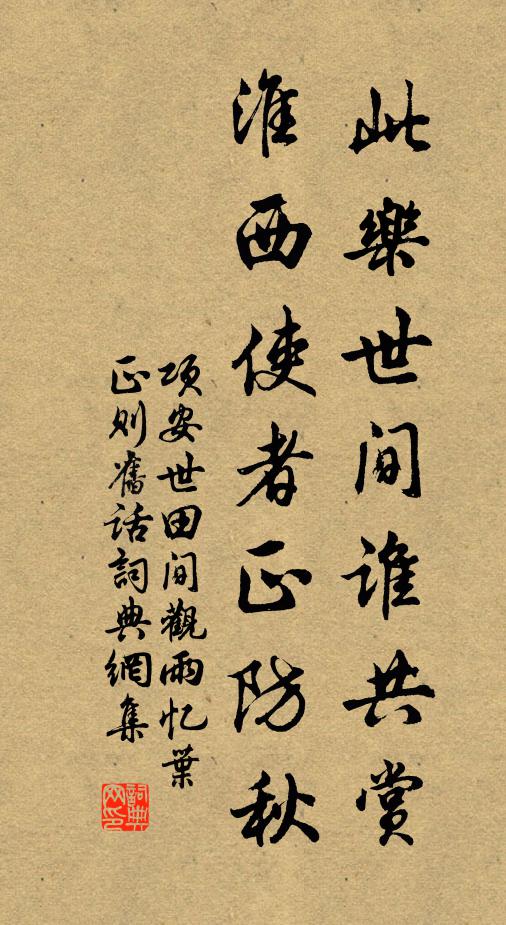 此樂世間誰共賞
淮西使者正防秋
項安世田間觀雨忆葉
正则舊話詞典網集
詞典網印